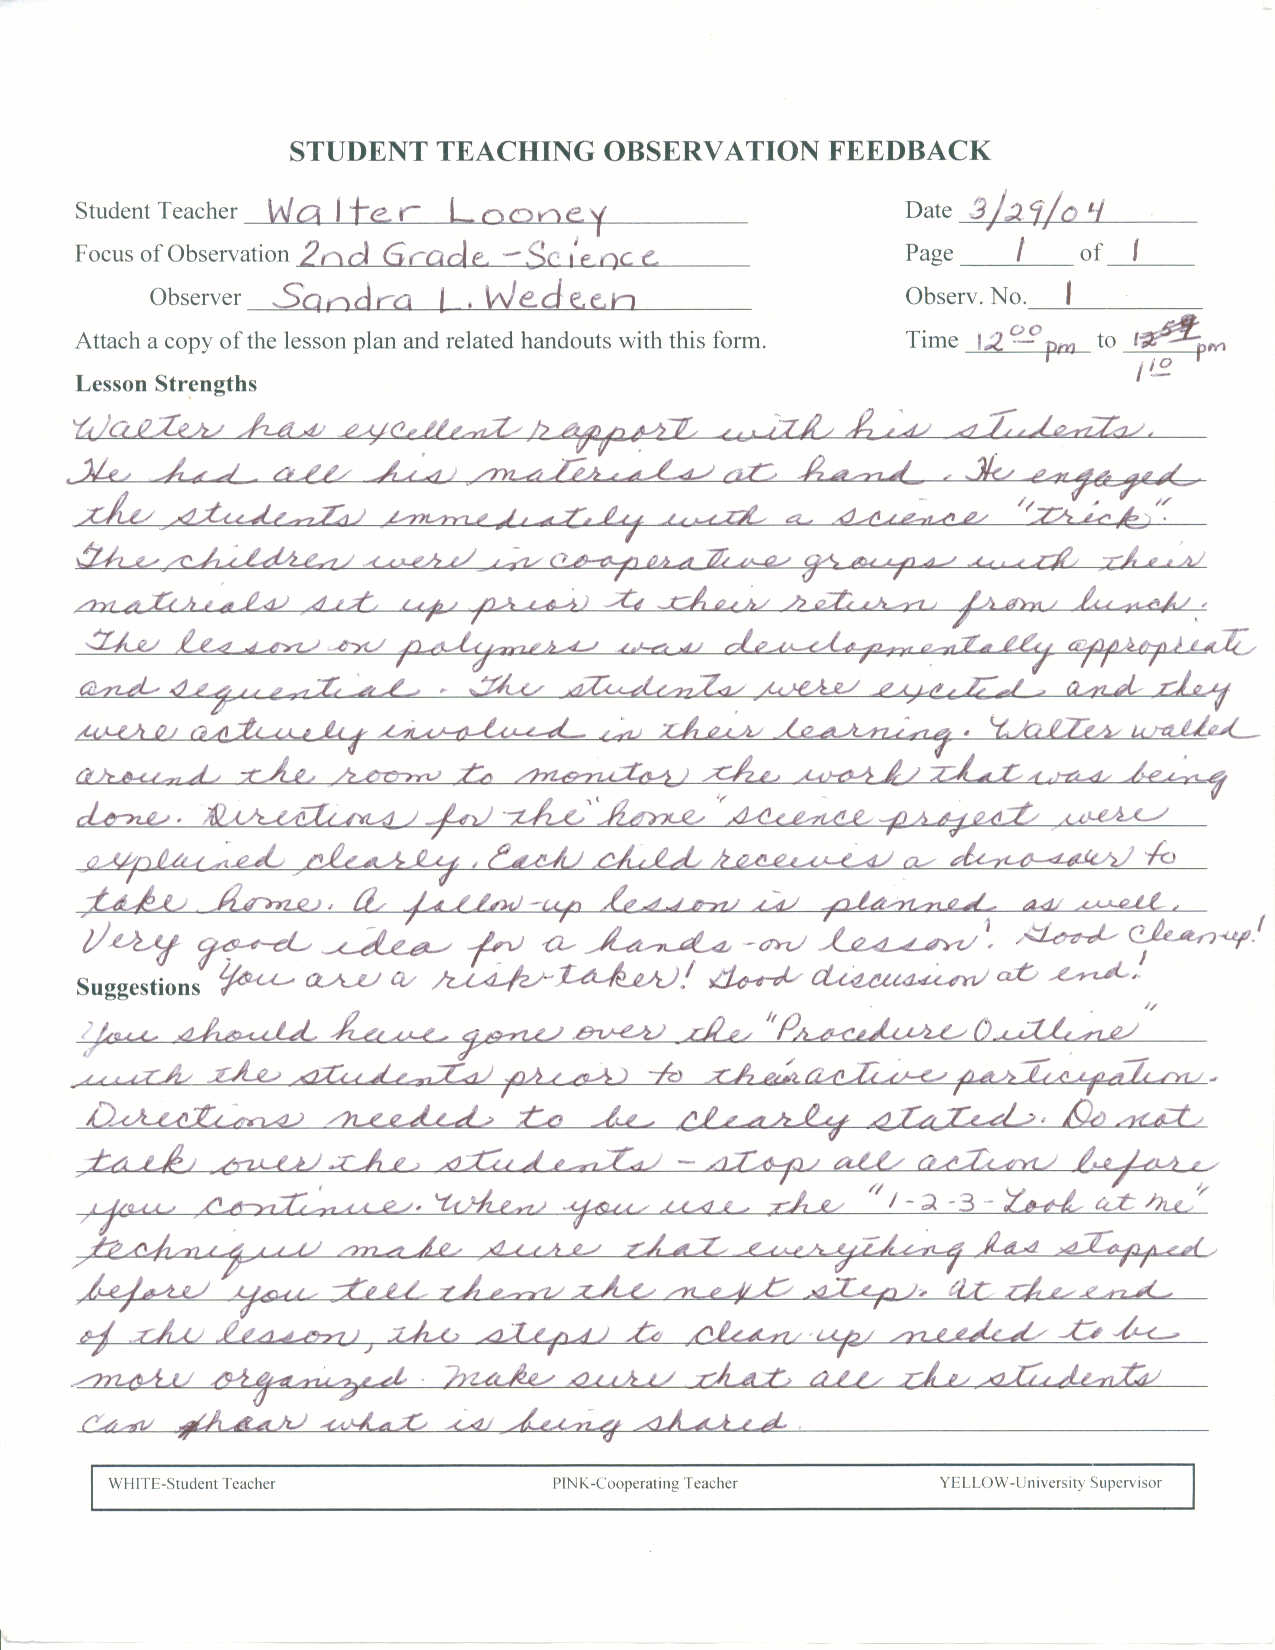 STUDENT TEACHING OBSERVATION FEEDBACK
Student Teacher Walter Looney Date 3/29/04
Focus of Observation 2nd Grade - Science Page 1 of 1
Observer Sandra L. Wedeen Observ. No. 1
Attach a copy of the lesson plan and related handouts with this form. Time 12 00 pm to 12 59 pm
1 10
Lesson Strengths
Walter has excellent rapport with his students.
He had all his materials at hand. He engaged
the students immediately with a science "trick".
The children were in cooperative groups with their
materials set up prior to their return from lunch.
The lesson on polymers was developmentally appropriate
and sequential. The students were excited and they
were actively involved in their learning. Walter walked
around the room to monitor the work that was being
done. Directions for the "home" science project were
explained clearly. Each child receives a dinosaur to
take home. A follow-up lesson is planned as well.
Very good idea for a hands-on lesson! Good Cleanup!
Suggestions You are a risk-taker! Good discussion at end!
You should have gone over the "Procedure Outline"
with the students prior to their active participation.
Directions needed to be clearly stated. Do not
talk over the students - stop all action before
you continue. When you use the "1-2-3-Look at Me"
technique make sure that everything has stopped
before you tell them the next step. At the end
of the lesson, the steps to clean up needed to be
more organized. Make sure that all the students
can hear what is being shared.
WHITE-Student Teacher PINK-Cooperating Teacher YELLOW-University Supervisor